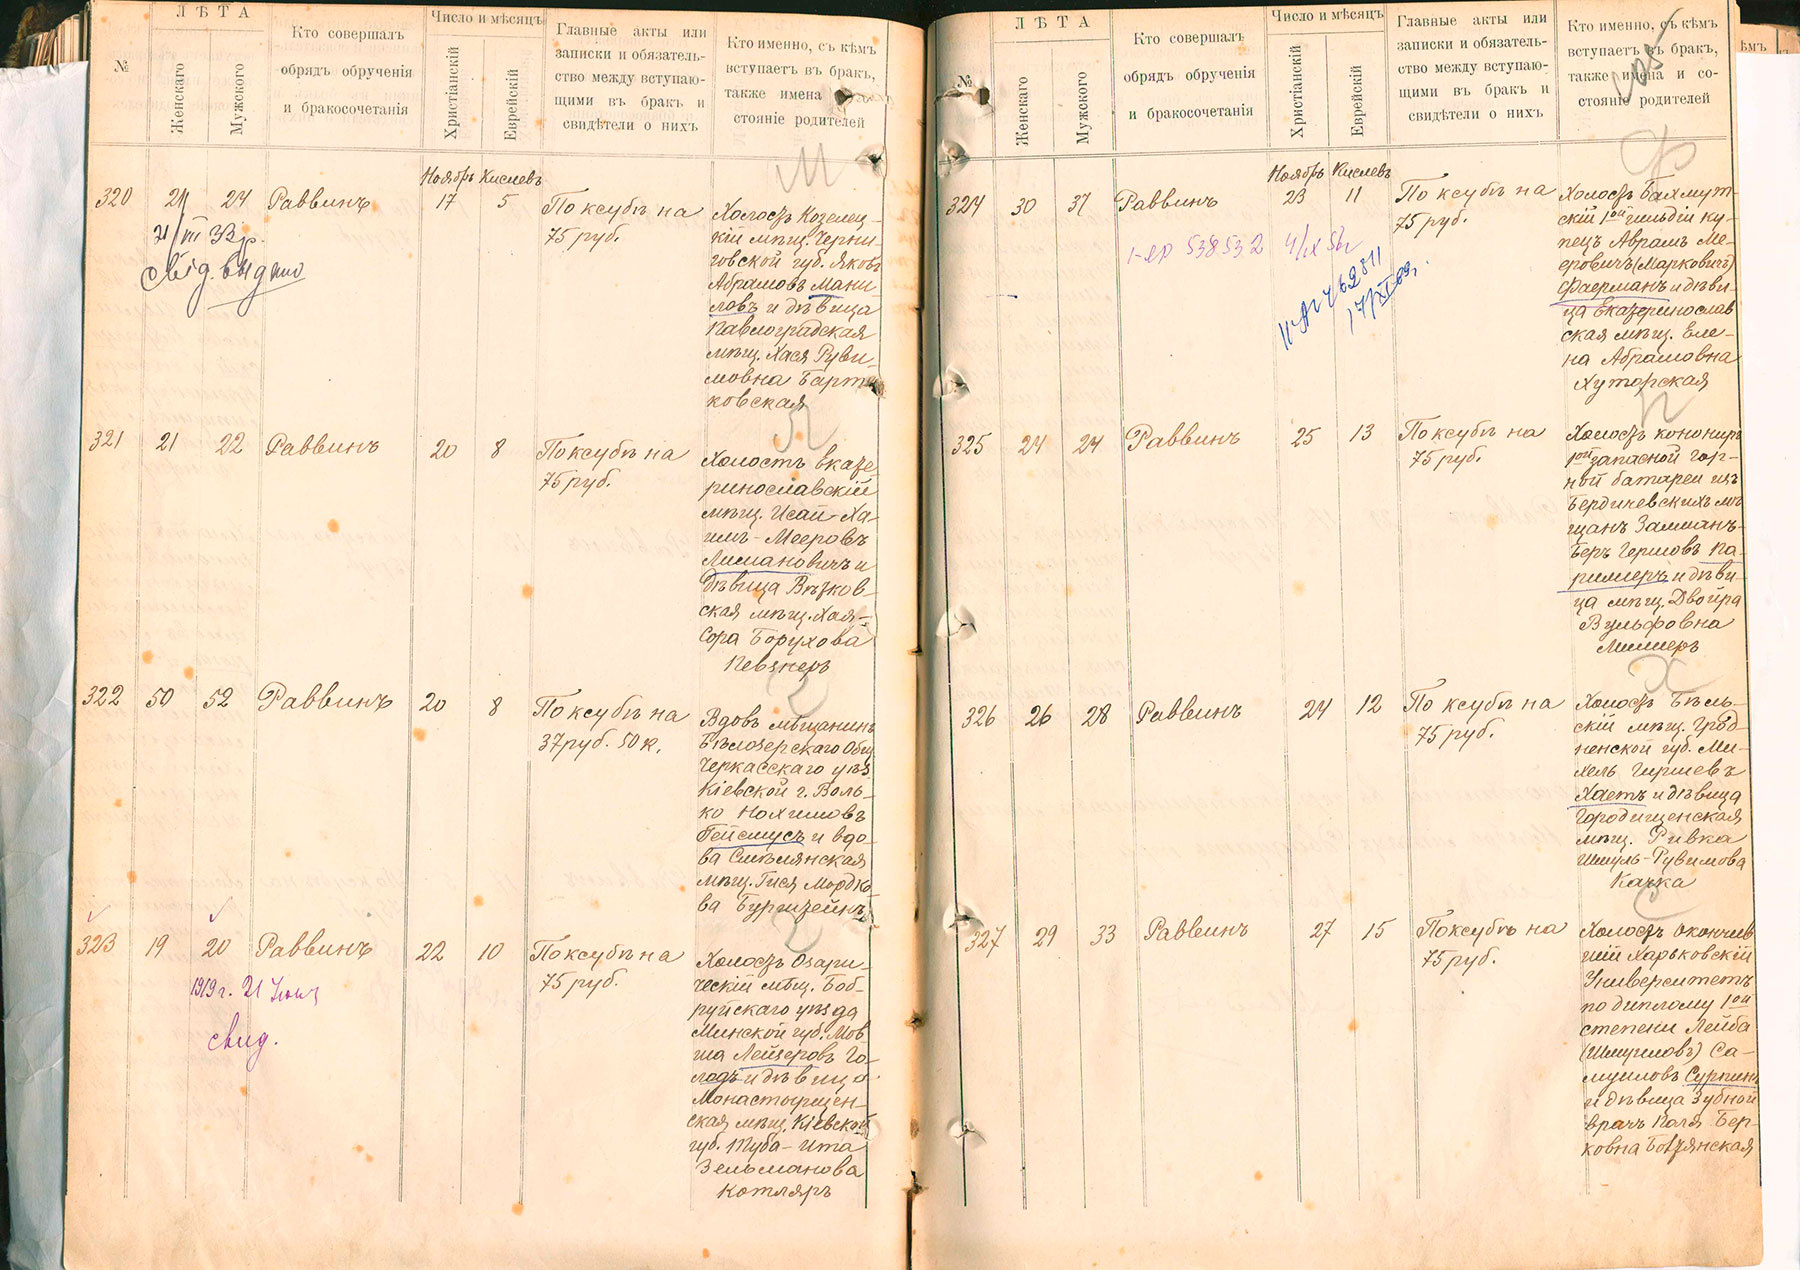 №
ЛѢТА
Женскаго
Мужского
Кто совершалъ
обрядъ обрученія
и бракосочетанія
Число и мѣсяцъ
Христіанскій
Еврейскій
Главные акты или
записки и обязатель-
ство между вступаю-
щими въ бракъ и
свидѣтели о нихъ
Кто именно, съ кѣмъ
вступаетъ въ бракъ,
также имена
стояніе родителей
М
Ноябрь Кислевъ
320 21 24 Раввинъ 17 5
По ксубѣ на
75 руб.
Холостъ Козелец-
кій мѣщ. Черни-
говской губ. Яковъ
Абрамовъ Мани-
ловъ и дѣвица
Павлоградская
мѣщ. Хася Руви-
мовна Барта-
ковская
21/III 32 р.
свід. видано
321 21 22 Раввинъ 20 8
По ксубѣ на
75 руб.
Л
Холостъ Екате-
ринославскій
мѣщ. Исай-Ха-
имъ-Мееровъ
Лисмановичъ и
дѣвица Вязков-
ская мѣщ. Хая-
Сора Борухова
Певзнеръ
322 50 52 Раввинъ 20 8
По ксубѣ на
37 руб. 50 к.
Вдовъ мѣщанинъ
Бѣлозерскаго Общ.
Черкасскаго уѣз.
Кіевской г. Воль-
ко Нохимовъ
Гейсмусъ и вдо-
ва Смѣлянская
мѣщ. Гися Мордко-
ва Бурштейнъ
323 19 20 Раввинъ 22 10
По ксубѣ на
75 руб.
Холостъ Озари-
ческій мѣщ. Боб-
руйскаго уѣзда
Минской губ. Мов-
ша Лейзеровъ Го-
лодъ и дѣвица
Монастырищен-
ская мѣщ. Кіевской
губ. Туба-Ита
Зельманова
Котляръ
1919 г. 21 Іюня
свид.
№
ЛѢТА
Женскаго
Мужского
Кто совершалъ
обрядъ обрученія
и бракосочетанія
Число и мѣсяцъ
Христіанскій
Еврейскій
Главные акты или
записки и обязатель-
ство между вступаю-
щими въ бракъ и
свидѣтели о нихъ
Кто именно, съ кѣмъ
вступаетъ въ бракъ,
также имена и со-
стояніе родителей
Ф
Ноябрь Кислевъ
324 30 37 Раввинъ 23 11
По ксубѣ на
75 руб.
Холостъ Бахмут-
скій 1ой гильдіи ку-
пецъ Авраамъ Ме-
еровичъ (Марковичъ)
Фаерманъ и дѣви-
ца Екатеринослав-
ская мѣщ. Еле-
на Абрамовна
Хуторская
I-ЯР 538532 4/IX 56г
462811
17/XI 69г.
325 24 24 Раввинъ 25 13
По ксубѣ на
75 руб.
Холостъ канониръ
1ой запасной гор-
ной батареи изъ
Бердичевскихъ мѣ-
щанъ Залманъ-
Беръ Гершовъ Па-
римеръ и дѣви-
ца мѣщ. Двойра
Вульфовна
Миллеръ
326 26 28 Раввинъ 24 12
По ксубѣ на
75 руб.
Х
Холостъ Бѣль-
скій мѣщ. Грод-
ненской губ. Ми-
хель Гиршевъ
Хаетъ и дѣвица
Городищенская
мѣщ. Ривка
Шмуль-Рувимова
Качка
327 29 33 Раввинъ 27 15
По ксубѣ на
75 руб.
С
Холостъ окончив-
шій Харьковскій
Университетъ
по диплому 1ой
степени Лейба
(Шмуиловъ) Са-
муиловъ Сурпинъ
и дѣвица Зубной
врачъ Поля Бер-
ковна Богрянская